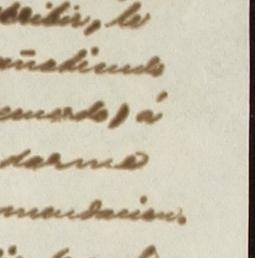 cribir, le
añadiendo
cuerdo, á
darme
mendacion.